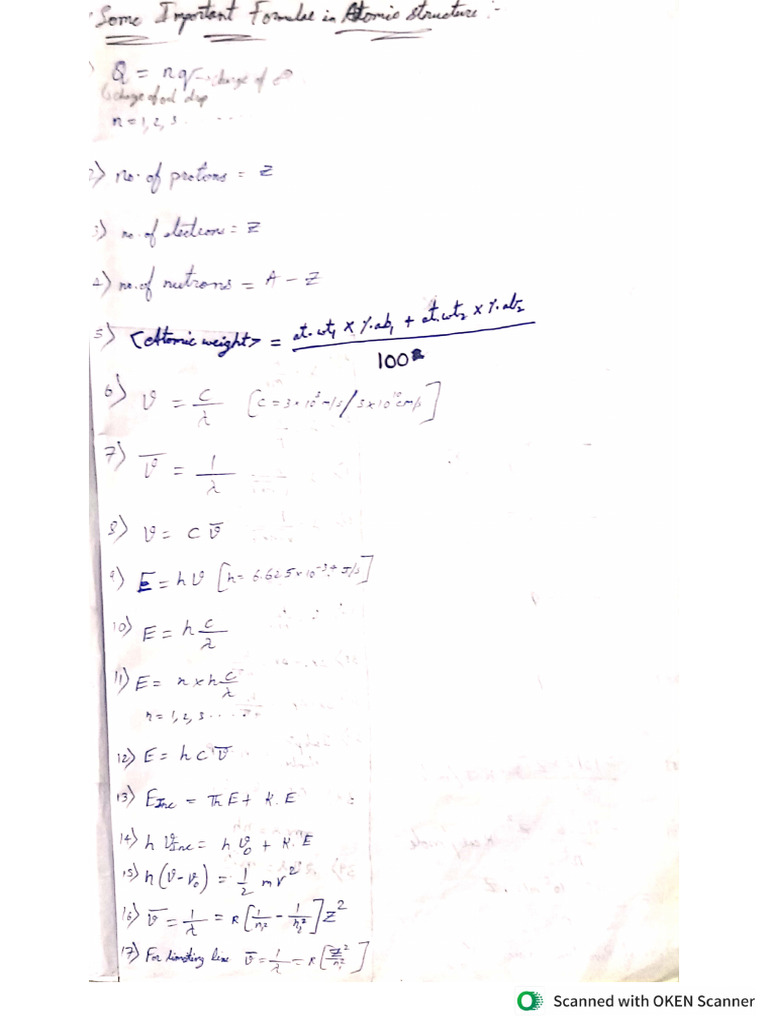 Some Important Formulae in Atomic structure :-
Q = nq → charge of e
charge of oil drop
n = 1, 2, 3 . . . . .
2) no. of protons = Z
3) no. of electrons = Z
4) no. of nutrons = A - Z
5) <Atomic weight> = (at. wt₁ × %.ab₁ + at. wt₂ × %.ab₂) / 100
6) ν = c/λ [c = 3×10⁸ m/s / 3×10¹⁰ cm/s]
7) ν̅ = 1/λ
8) ν = c ν̅
9) E = hν [h = 6.625×10⁻³⁴ J/s]
10) E = h c/λ
11) E = n × h c/λ
n = 1, 2, 3 . . .
12) E = h c ν̅
13) E_Inc = Th E + K. E
14) h ν_Inc = h ν₀ + K. E
15) h (ν - ν₀) = 1/2 mv²
16) ν̅ = 1/λ = R [1/n₁² - 1/n₂²] Z²
17) For limiting line ν̅ = 1/λ = R [Z²/n₁²]
Scanned with OKEN Scanner